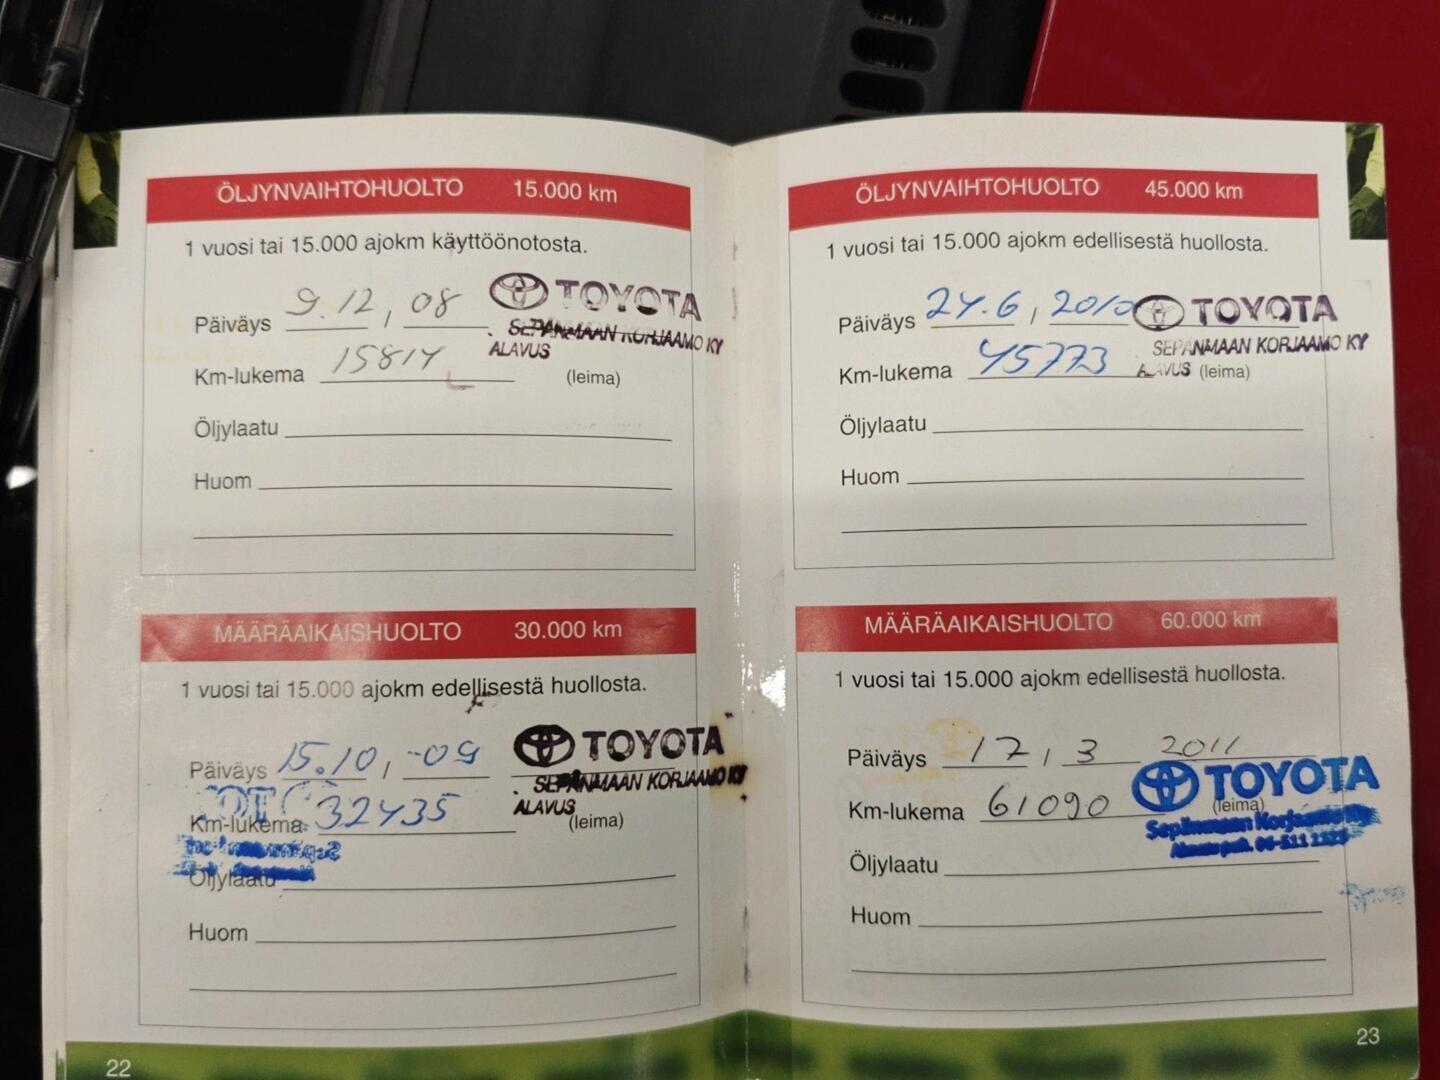 ÖLJYNVAIHTOHUOLTO 15.000 km
1 vuosi tai 15.000 ajokm käyttöönotosta.
Päiväys 9.12, 08
TOYOTA
SEPÄNMAAN KORJAAMO KY
ALAVUS
Km-lukema 15814
(leima)
Öljylaatu
Huom
MÄÄRÄAIKAISHUOLTO 30.000 km
1 vuosi tai 15.000 ajokm edellisestä huollosta.
Päiväys 15.10, -09
TOYOTA
SEPÄNMAAN KORJAAMO KY
ALAVUS
Km-lukema 32435
(leima)
Öljylaatu
Huom
22
ÖLJYNVAIHTOHUOLTO 45.000 km
1 vuosi tai 15.000 ajokm edellisestä huollosta.
Päiväys 24.6, 2010
TOYOTA
SEPÄNMAAN KORJAAMO KY
ALAVUS
Km-lukema 45773
(leima)
Öljylaatu
Huom
MÄÄRÄAIKAISHUOLTO 60.000 km
1 vuosi tai 15.000 ajokm edellisestä huollosta.
Päiväys 17, 3 2011
TOYOTA
Sepänmaan Korjaamo Ky
Km-lukema 61090
(leima)
Öljylaatu
Huom
23